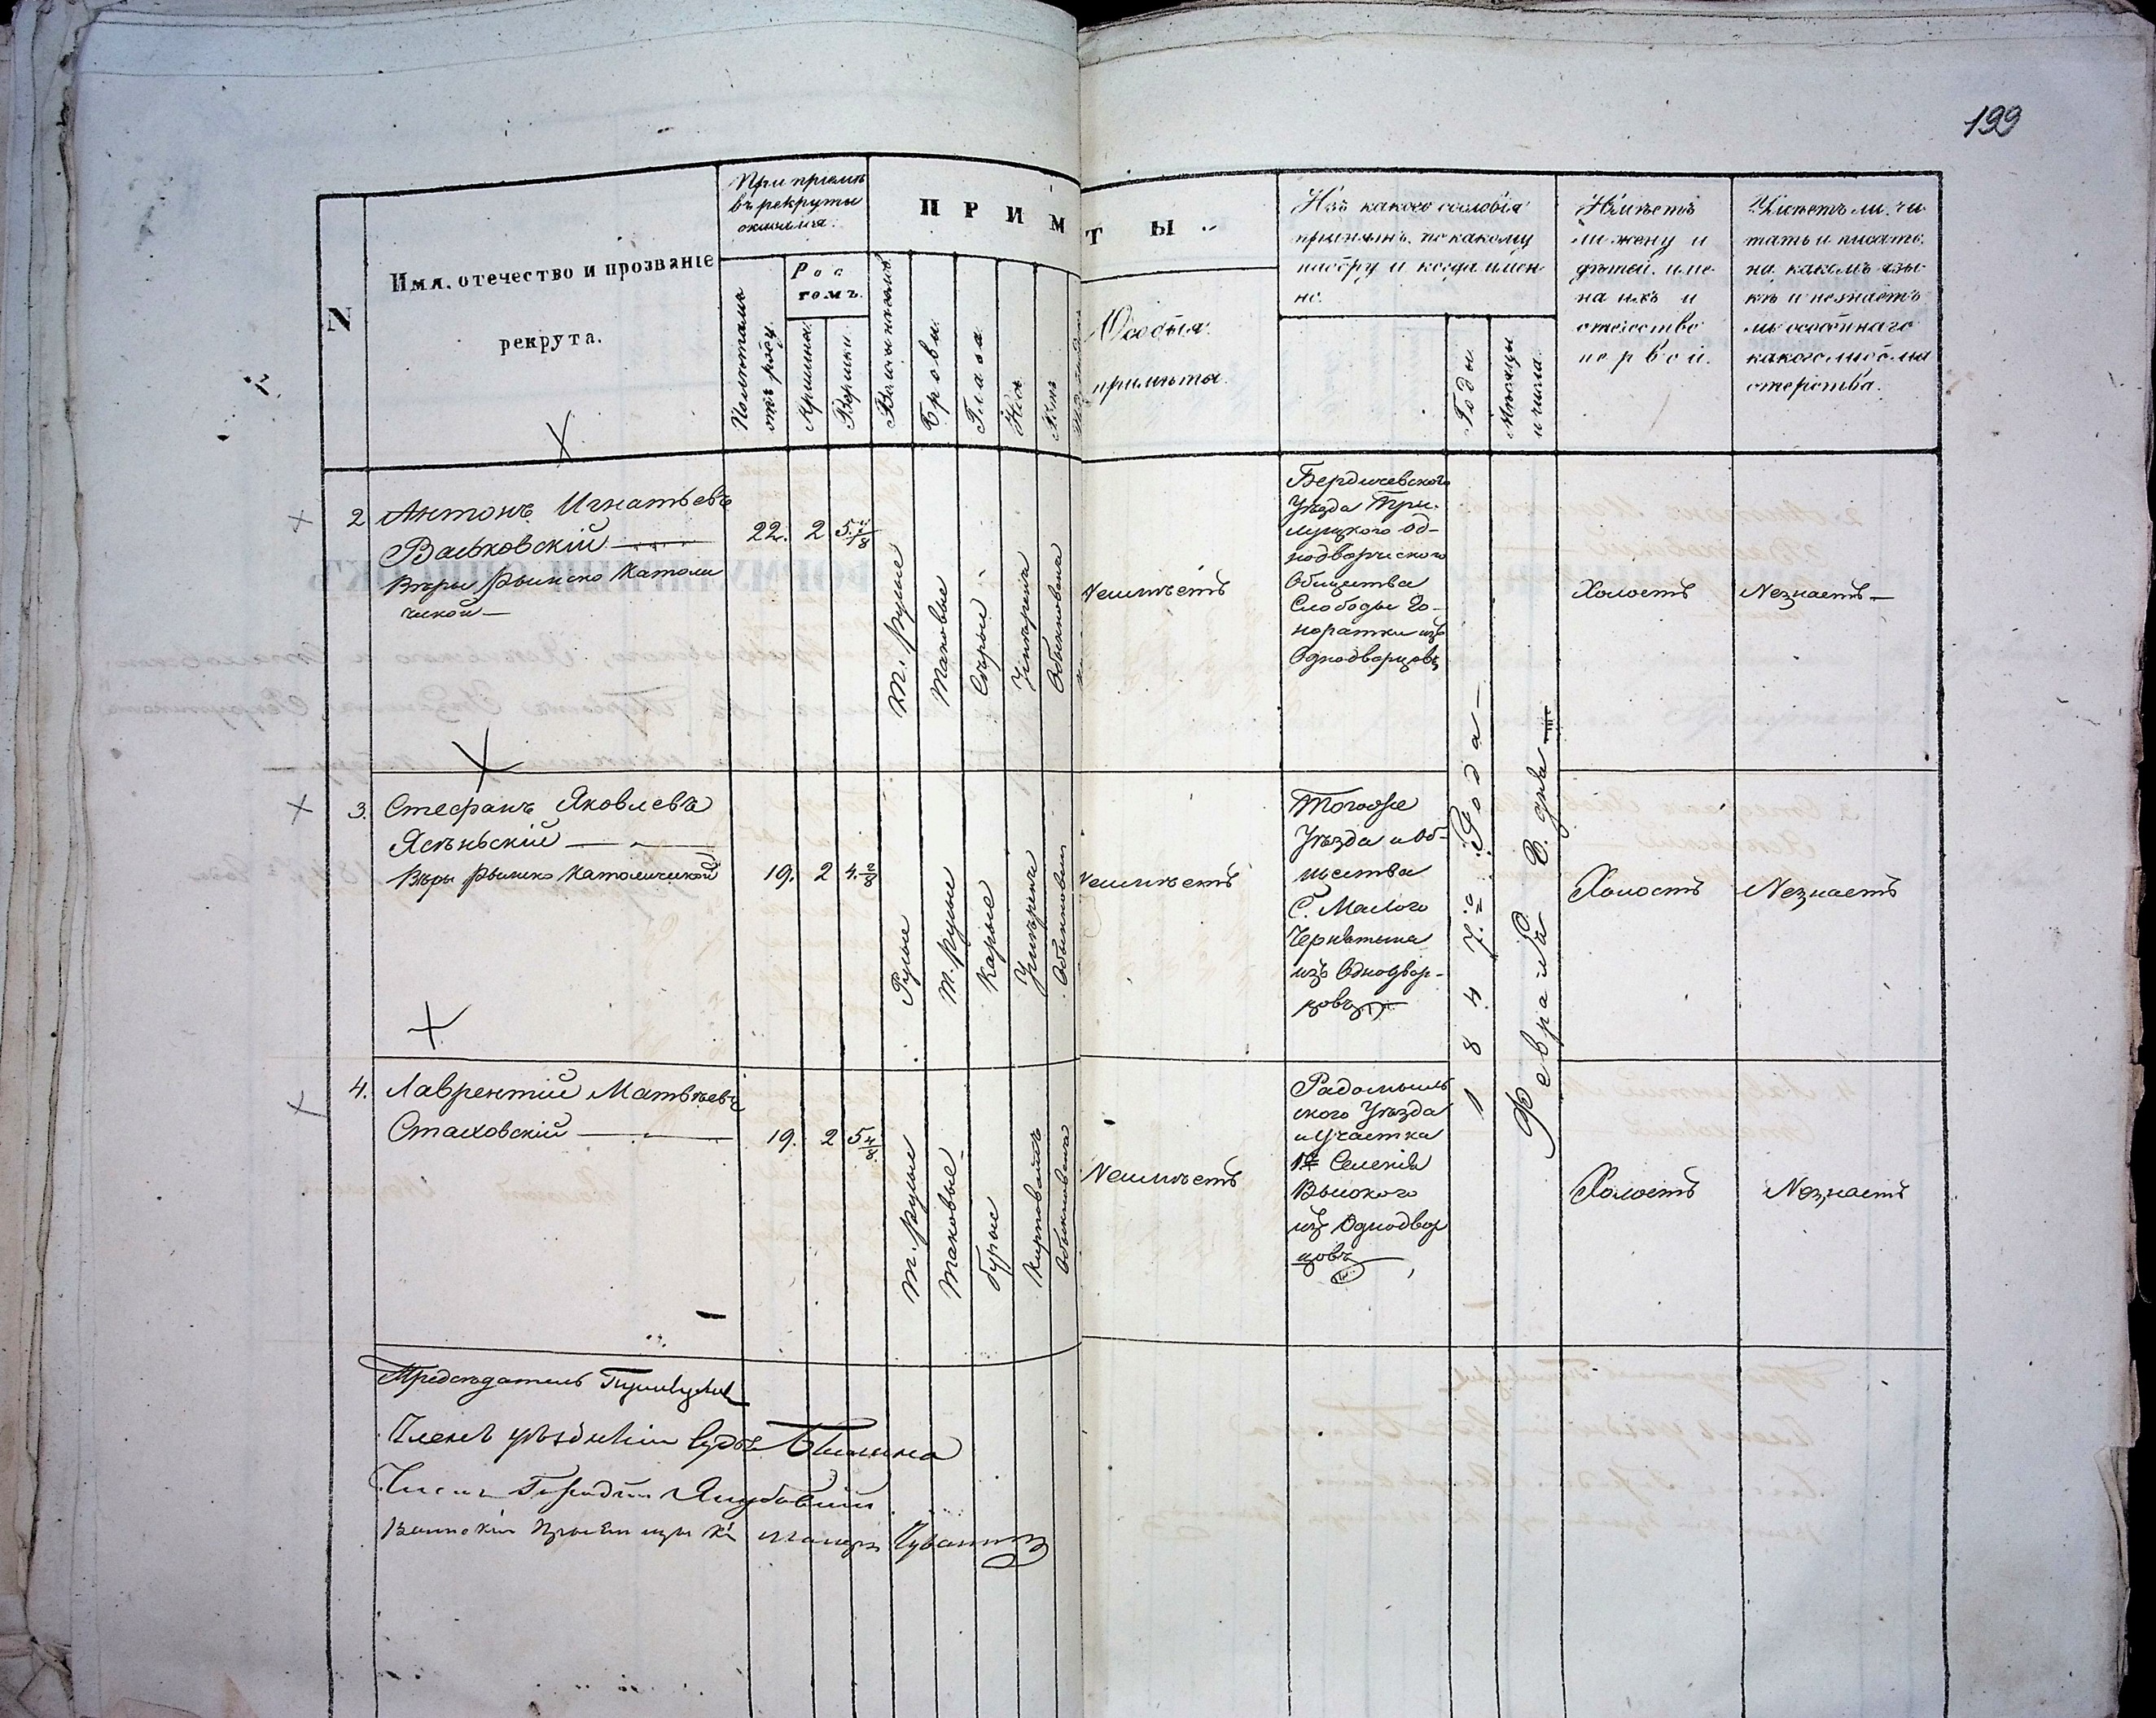 199
N
Имя, отечество и прозваніе
рекрута.
При пріемѣ
въ рекруты
оказался:
Полѣтамъ
отъ роду.
Рос
томъ.
Аршины.
Вершки.
ПРИМѢТЫ
Волосы на голов.
Брови.
Глаза.
Носъ
Ротъ
Особыя
примѣты.
Изъ какого сословія
принятъ, по какому
набору и когда имен-
но.
Годы.
Мѣсяцы
и числа.
Имѣетъ
ли жену и
дѣтей, име-
на ихъ и
отечество
первой.
Умѣетъ ли чи-
тать и писать,
на какомъ язы-
кѣ и незнаетъ
ли особеннаго
какого либо ма
стерства.
2. Антонъ Игнатьевъ
Вальковскій
Вѣры Рымско Катали
чиской
22. 2 5
Т. русые
Таковые
Сѣрые
Умѣренъ
Обыкновенъ
Неимѣетъ
Бердичевского
Уѣзда При-
луцкого Од-
нодворческого
Общества
Слободы Го-
норатки изъ
Однодворцовъ
Холостъ
Незнаетъ
3. Стефанъ Яковлевъ
Ясѣньскій
Вѣры Рымско Католической
19. 2 4
Русые
Т. русые
Карые
Умѣренъ
Обыкновенъ
Неимѣетъ
Тогоже
Уѣзда и Об-
щества
С. Малого
Чернятына
изъ Однодвор-
цовъ
Холостъ
Незнаетъ
4. Лаврентій Матвѣевъ
Стаховскій
19. 2 5 4/8
Т. русые
Таковые
бурые
Обыкновенъ
Неимѣетъ
Радомысль
ского Уѣзда
и Участка
1го Селенія
Высокого
изъ Однодвор
цовъ
Холостъ
Незнаетъ
1847.го Года
Февраля 8. дня
Предсѣдатель
Членъ уѣздный Судья